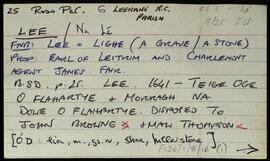 25 ROSS PAR. 6 LEENANE R.C.
PARISH
LEE / Na Lí
FNR: LEE = LIGHE (A GRAVE / A STONE)
PROP. EARL OF LEITRIM AND CHARLEMONT
AGENT JAMES FAIR.
B.S.D. p. 25. LEE. 1641 - TEIGE OGE
O FLAHARTYE & MORRAGH NA
DONE O FLAHARTYE. DISPOSED TO
JOHN BROWNE & MAN THOMPSON
[Ó.D: lia, m., g. -, stone,
P120/1/8/16